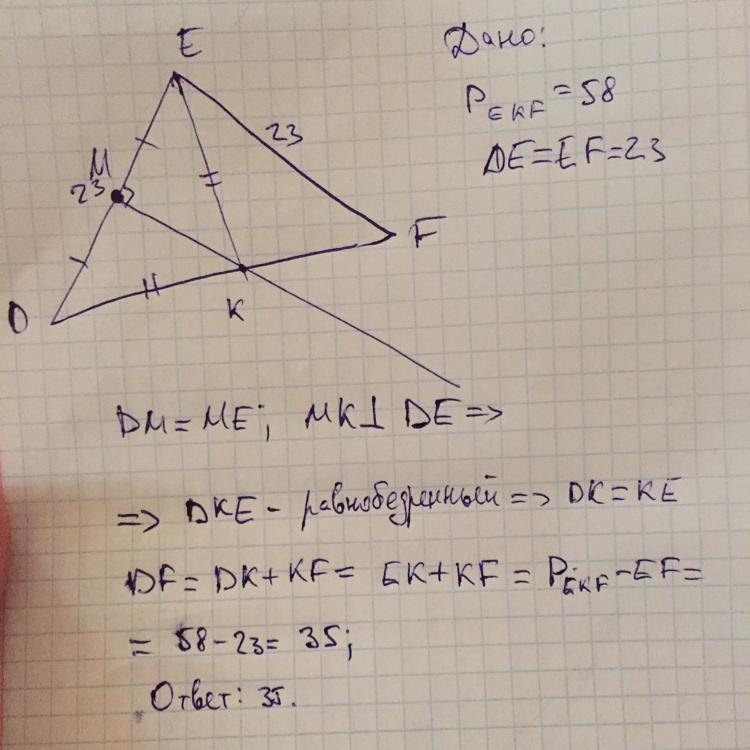 E
Дано:
P_EKF = 58
DE=EF=23
23
M
23
F
D
K
DM = ME; MK⊥ DE =>
=> DKE - равнобедренный => DK = KE
DF = DK + KF = EK + KF = P_EKF - EF =
= 58 - 23 = 35;
Ответ: 35.